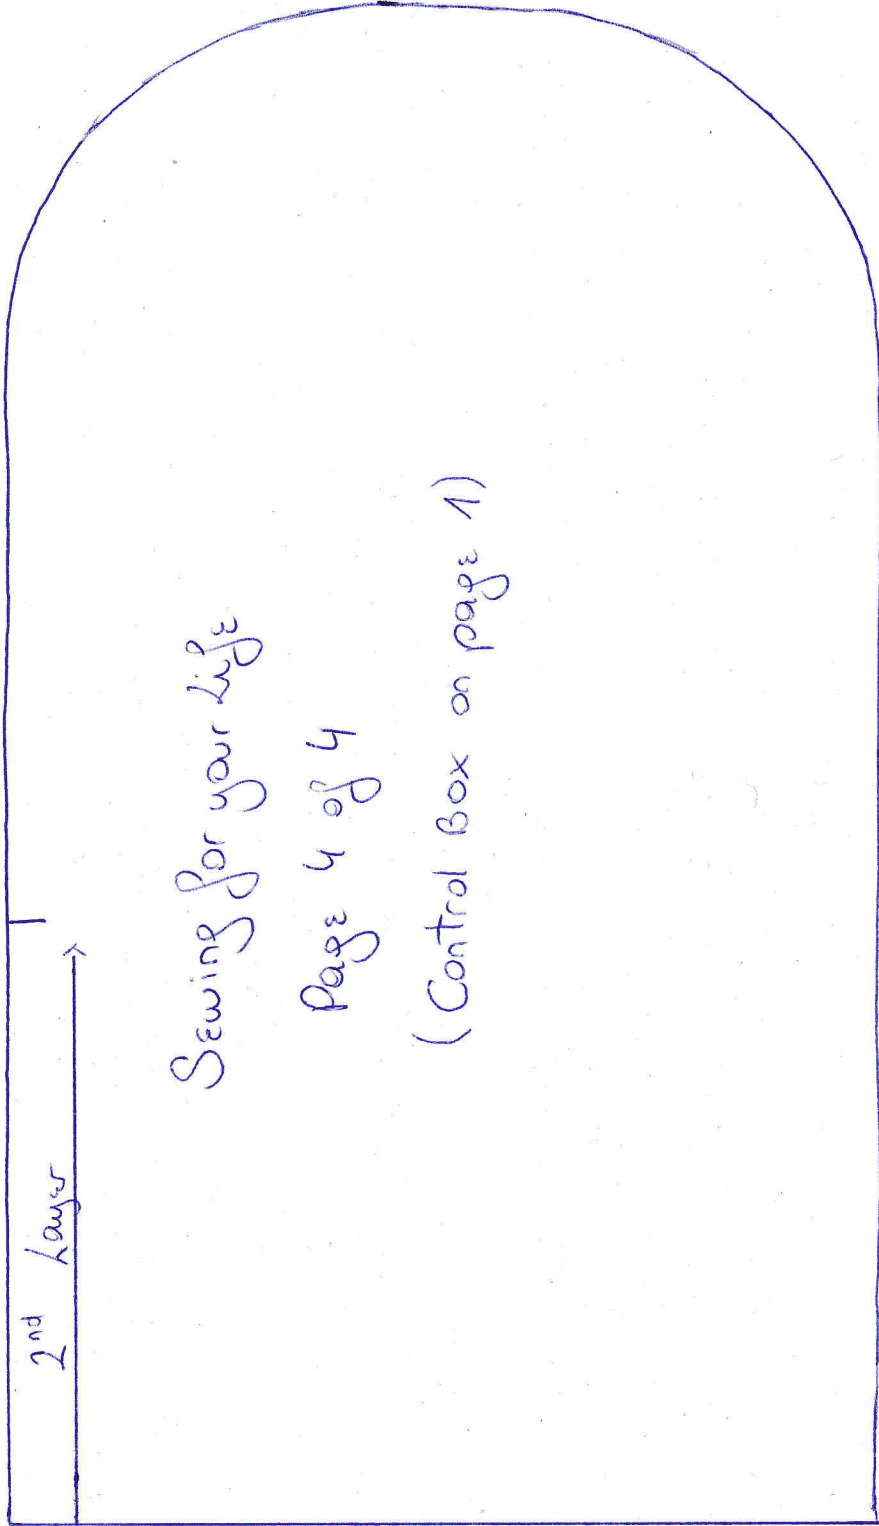 2nd Layer
Sewing for your Life
Page 4 of 4
(Control Box on page 1)